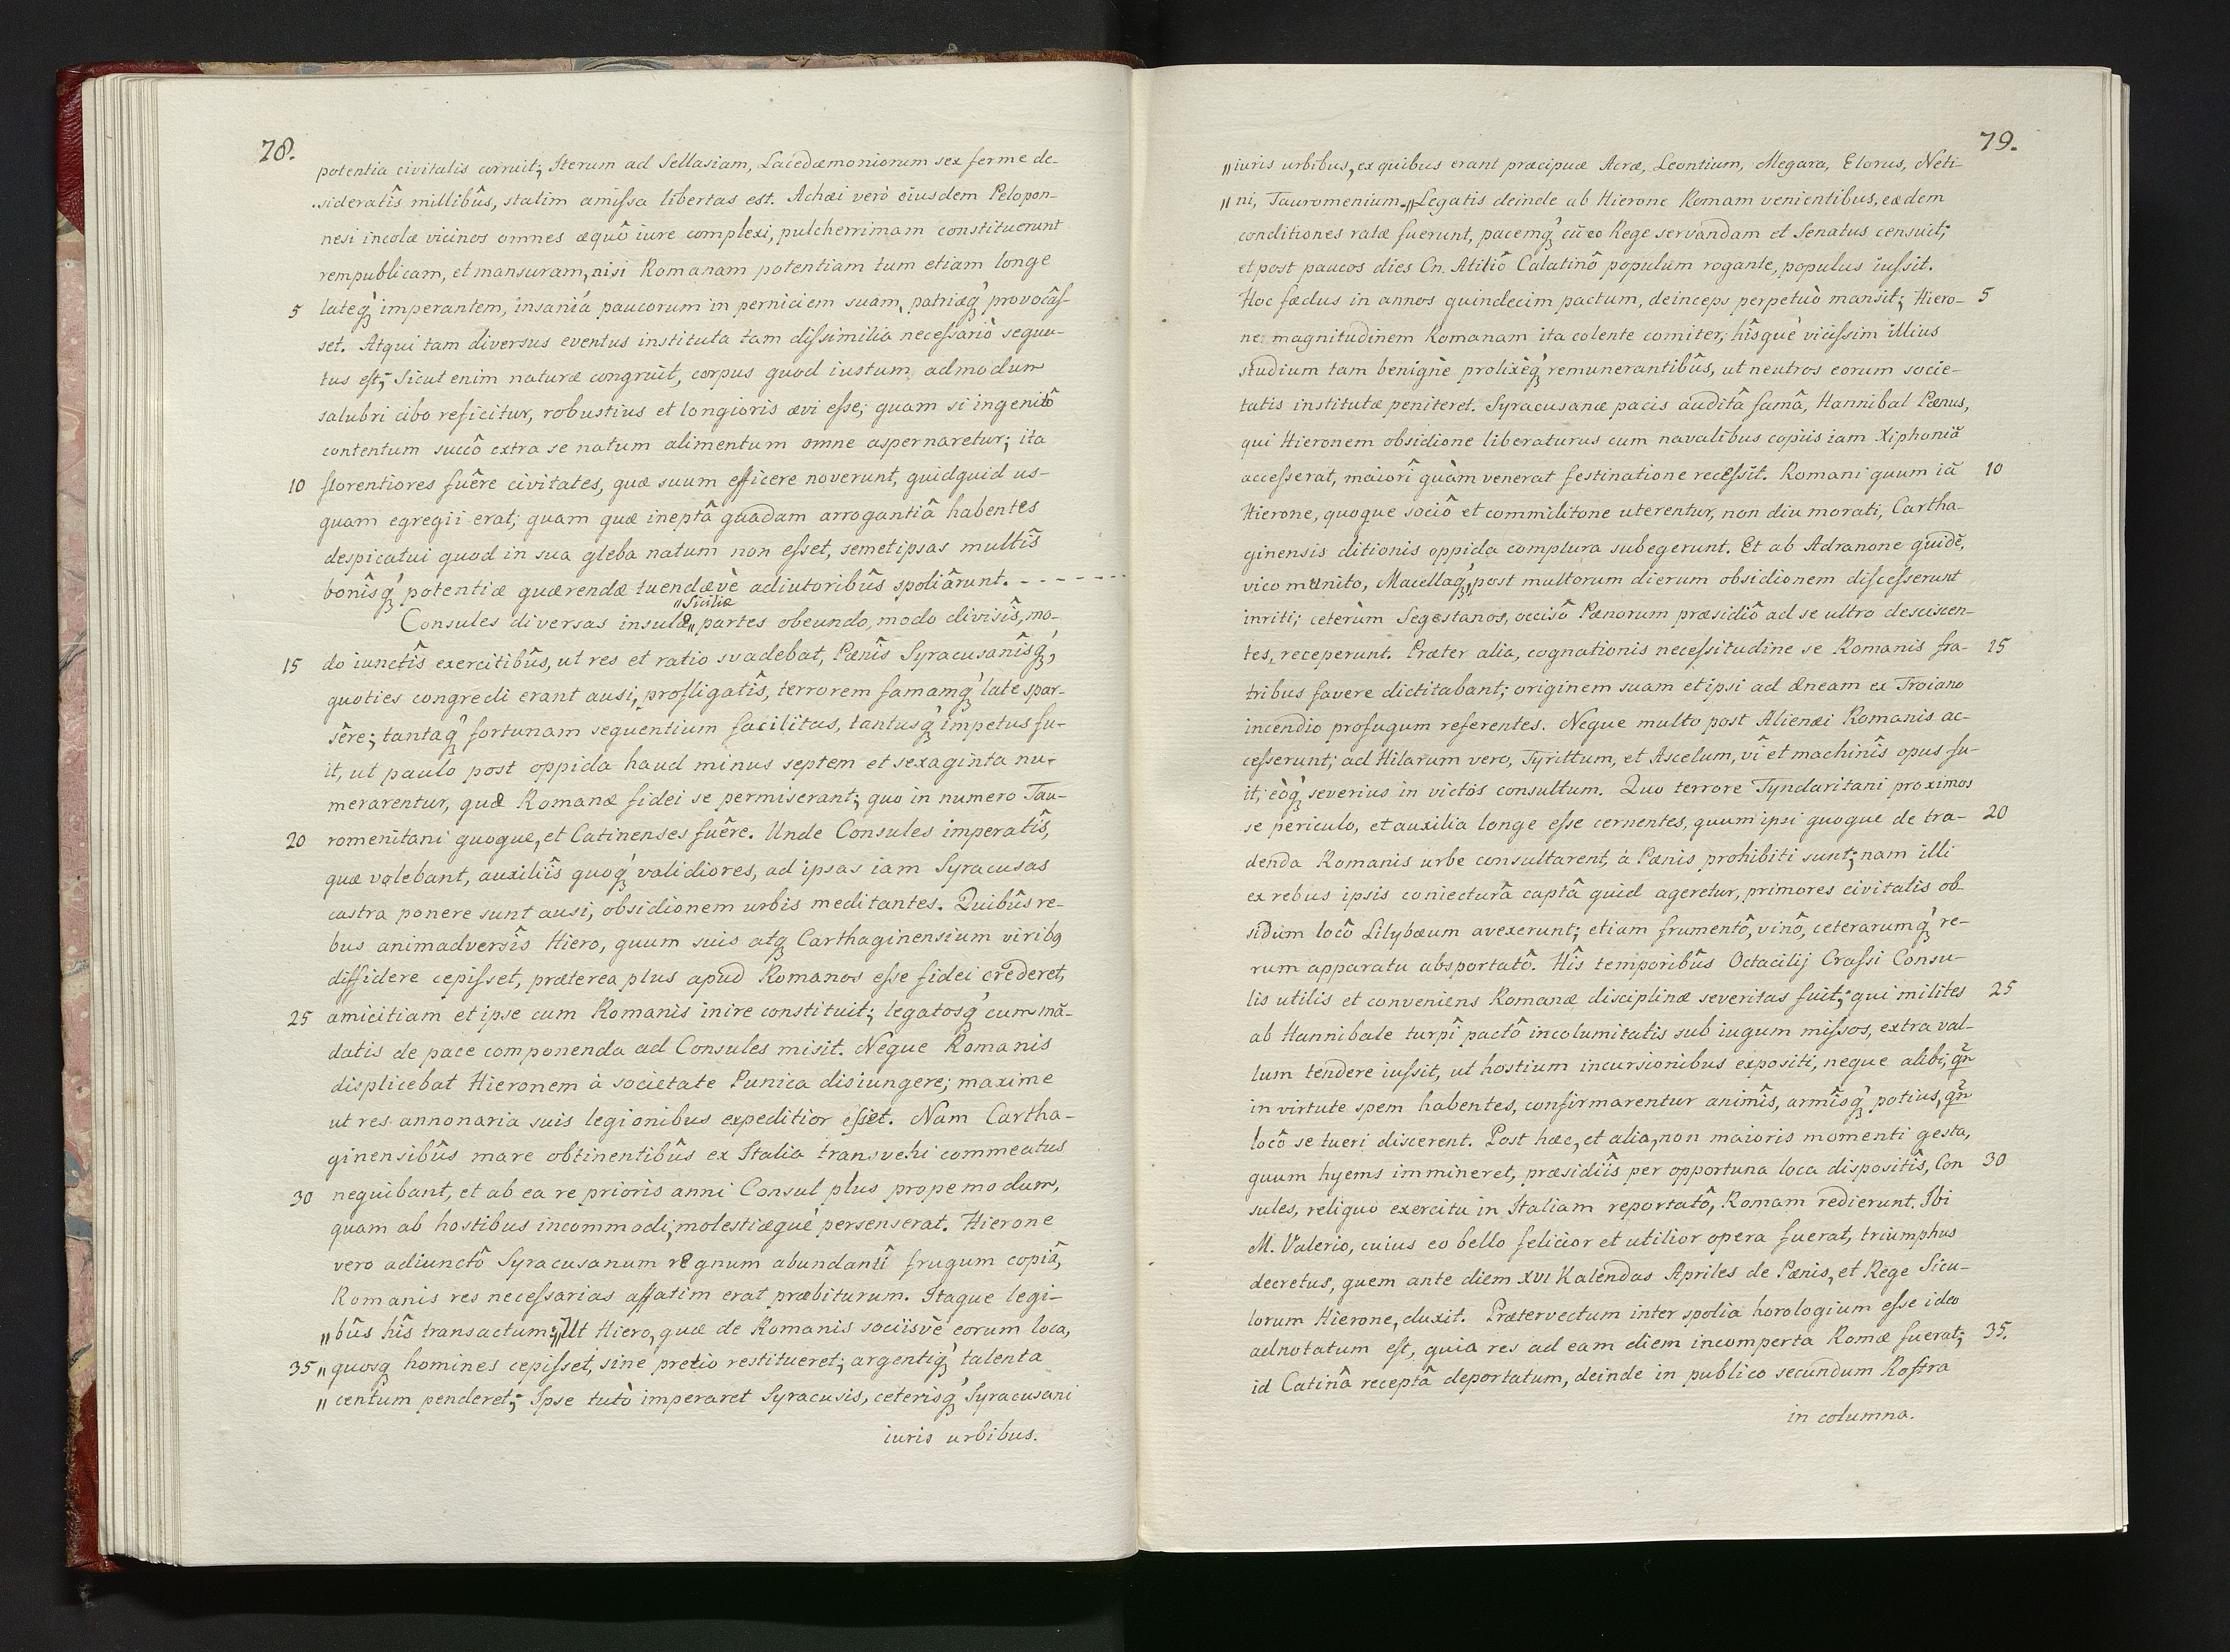 78.
potentia civitatis corruit; Iterum ad Sellasiam, Lacedæmoniorum sex ferme de-
sideratîs millibûs, statim amissa libertas est. Achæi verò eiusdem Pelopon-
nesi incolæ vicinos omnes æquô iure complexi, pulcherrimam constituerunt
rempublicam, et mansuram, nisi Romanam potentiam tum etiam longe
5 lateq́ꝫ imperantem, insaniâ paucorum in perniciem suam, patriæq́ꝫ provocâs-
set. Atqui tam diversus eventus instituta tam dissimilia necessariò sequu-
tus est; Sicut enim naturæ congruit, corpus quod iustum admodum
salubri cibo reficitur, robustius et longioris ævi esse; quam si ingenitô
contentum succô extra se natum alimentum omne aspernaretur; ita
10 florentiores fuêre civitates, quæ suum efficere noverunt, quidquid us-
quam egregii erat; quam quæ ineptâ quadam arrogantiâ habentes
despicatui quod in sua gleba natum non esset, semetipsas multîs
bonîsq́ꝫ potentiæ quærendæ tuendævè adiutoribûs spoliârunt. - - - - - - -
„Siciliæ
Consules diversas insulæ„ partes obeundo, modo divisîs, mo-
15 do iunctîs exercitibûs, ut res et ratio svadebat, Pænîs Syracusanîsq́ꝫ,
quoties congredi erant ausi, profligatîs, terrorem famamq́ꝫ late spar-
sêre; tantaq́ꝫ fortunam sequentium facilitas, tantusq́ꝫ impetus fu-
it, ut paulo post oppida haud minus septem et sexaginta nu-
merarentur, quæ Romanæ fidei se permiserant; quo in numero Tau-
20 romenitani quoque, et Catinenses fuêre. Unde Consules imperatîs,
quæ volebant, auxiliîs quoq́ꝫ validiores, ad ipsas iam Syracusas
castra ponere sunt ausi, obsidionem urbis meditantes. Quibûs re-
bus animadversîs Hiero, quum suis atqꝫ Carthaginensium viribꝯ
diffidere cepisset, præterea plus apud Romanos esse fidei crederet,
25 amicitiam et ipse cum Romanis inire constituit; legatosq́ꝫ cum mā-
datis de pace componenda ad Consules misit. Neque Romanis
displicebat Hieronem à societate Punica disiungere; maxime
ut res annonaria suis legionibus expeditior esset. Nam Cartha-
ginensibûs mare obtinentibûs ex Italia transvehi commeatus
30 nequibant, et ab ea re prioris anni Consul plus propemodum,
quam ab hostibus incommodi, molestiæquè persenserat. Hierone
vero adiunctô Syracusanum regnum abundantî frugum copiâ,
Romanis res necessarias affatim erat præbiturum. Itaque legi-
„ bûs hîs transactum: „Ut Hiero, quæ de Romanis sociisvè eorum loca,
35 „ quosqꝫ homines cepisset, sine pretio restitueret; argentiq́ꝫ talenta
„ centum penderet; Ipse tutò imperaret Syracusis, ceterisq́ꝫ Syracusani
iuris urbibus.
79.
„ iuris urbibus, ex quibus erant præcipuæ Acræ, Leontium, Megara, Elorus, Neti-
„ ni, Tauromenium. „ Legatis deinde ab Hierone Romam venientibus, eædem
conditiones ratæ fuerunt, pacemq́ꝫ cū eo Rege servandam et Senatus censuit;
et post paucos dies Cn. Atiliô Calatinô populum rogante, populus iussit.
Hoc fædus in annos quindecim pactum, deinceps perpetuò mansit; Hiero- 5
ne magnitudinem Romanam ita colente comiter; hîsquè vicissim illius
studium tam benignè prolixèq́ꝫ remunerantibûs, ut neutros eorum socie-
tatis institutæ peniteret. Syracusanæ pacis auditâ famâ, Hannibal Pænus,
qui Hieronem obsidione liberaturus cum navalibus copiis iam Xiphoniā
accesserat, maiorî quàm venerat festinatione recessit. Romani quum iā 10
Hierone, quoque sociô et commilitone uterentur, non diu morati, Cartha-
ginensis ditionis oppida complura subegerunt. Et ab Adranone quidē,
vico munito, Macellaq́ꝫ, post multorum dierum obsidionem discesserunt
inriti; ceterùm Segestanos, occisô Pænorum præsidiô ad se ultro desciscen-
tes, receperunt. Præter alia, cognationis necessitudine se Romanis fra- 15
tribus favere dictitabant; originem suam et ipsi ad Æneam ex Troiano
incendio profugum referentes. Neque multo post Alienæi Romanis ac-
cesserunt; ad Hilarum vero, Tyrittum, et Ascelum, vî et machinîs opus fu-
it; eòq́ꝫ severius in victos consultum. Quo terrore Tyndaritani proximos
se periculo, et auxilia longe esse cernentes, quum ipsi quoque de tra- 20
denda Romanis urbe consultarent, à Pænis prohibiti sunt; nam illi
ex rebus ipsis coniecturâ captâ quid ageretur, primores civitatis ob-
sidum locô Lilybæum avexerunt; etiam frumentô, vinô, ceterarumq́ꝫ re-
rum apparatu absportatô. Hîs temporibûs Octacilij Crassi Consu-
lis utilis et conveniens Romanæ disciplinæ severitas fuit; qui milites 25
ab Hannibale turpî pactô incolumitatis sub iugum missos, extra val-
lum tendere iussit, ut hostium incursionibus expositi, neque alibi, qm̃
in virtute spem habentes, confirmarentur animîs, armîsq́ꝫ potius, qm̃
locô se tueri discerent. Post hæc, et alia, non maioris momenti gesta,
quum hyems immineret, præsidiîs per opportuna loca dispositîs, Con 30
sules, reliquo exercitu in Italiam reportatô, Romam redierunt. Ibi
M. Valerio, cuius eo bello felicior et utilior opera fuerat, triumphus
decretus, quem ante diem XVI Kalendas Apriles de Pænis, et Rege Sicu-
lorum Hierone, duxit. Prætervectum inter spolia horologium esse ideo
adnotatum est, quia res ad eam diem incomperta Romæ fuerat; 35.
id Catinâ receptâ deportatum, deinde in publico secundum Rostra
in columna.